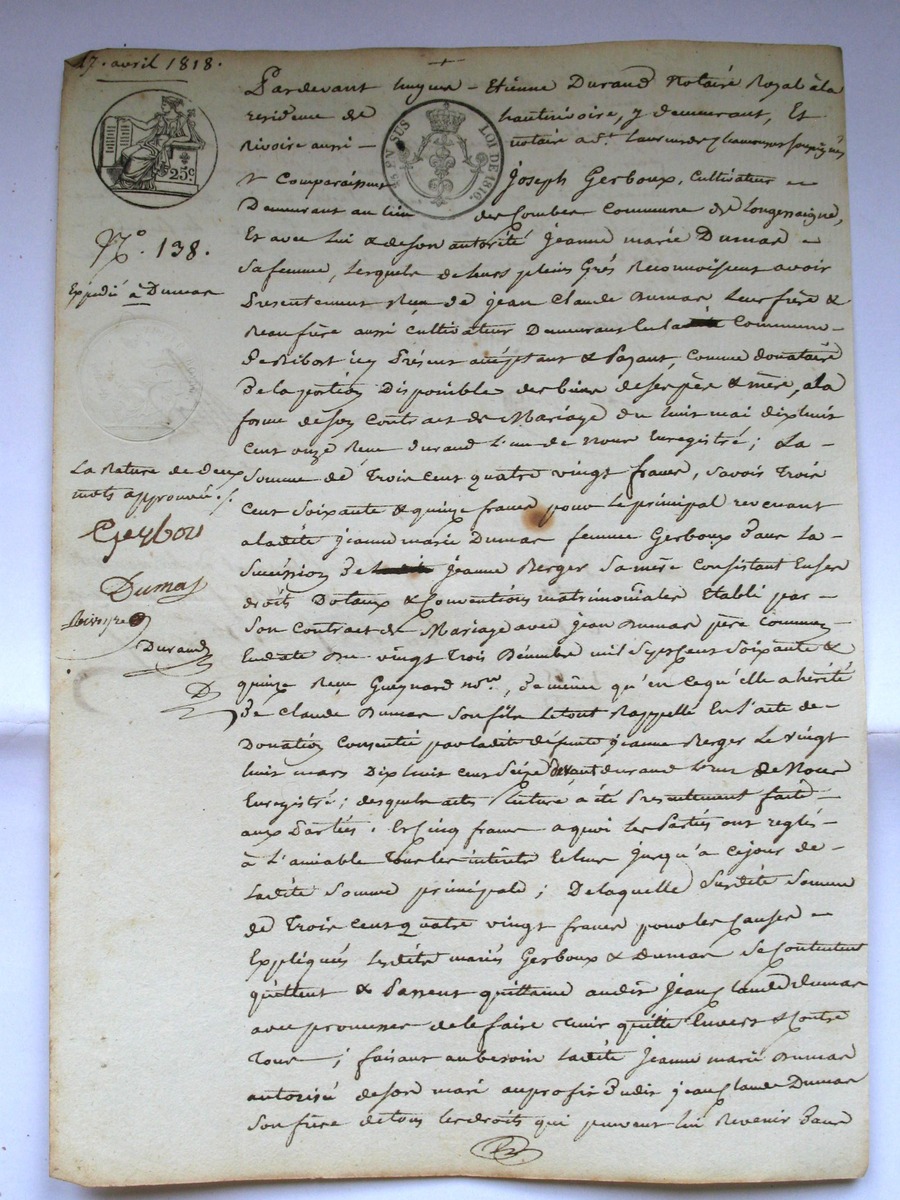 17. avril 1818.
25 c
EN SUS
LOI DE 1816.
N.° 138.
Expédié à Dumas
La Rature de deux
mots approuvée ./.
Gerbou
Dumas
Durand
D
Pardevant Etienne Durand Notaire Royal à la
residence de hauterivoire, y demeurant, Et
Rivoire aussi notaire a St. Laurent de Chamousset soussignés
Comparaissent Joseph Gerboux, Cultivateur
Demeurant au lieu des Combes Commune de Longessaigne,
Et avec Lui & de son autorité Jeanne marie Dumas
Sa femme, Lesquels de leurs pleins Grés Reconnoissent avoir
Presentement Reçu de jean Claude Dumas Leur frère &
Beaufrère aussi Cultivateur Demeurant Commune
De Ribost icy Présent acceptant & Payant, Comme donataire
De la portion Disponible des biens de ses père & mère, a la
forme de son Contract de Mariage du huit mai dix huit
Cent onze Reçu durand L'un de Nous Enregistré ; La
Somme de Trois Cent quatre vingt francs, Savoir Trois
Cent Soixante & quinze francs pour Le principal revenant
a ladite jeanne marie Dumas femme Gerboux Dans La
Succession De Jeanne Berger Sa mère Consistant En ses
droits Dotaux & Conventions matrimoniales Etabli par
Son Contract de Mariage avec jean Dumas père
En date Du vingt Trois Décembre mil Sept Cent Soixante &
quinze Reçu Guynard no.re, De même qu'en Ce qu'elle a hérité
De Claude Dumas Son fils Le tout Rappellé En l'acte de
Donation Consentie par ladite défunte jeanne Berger Le vingt
huit mars Dix huit Cent Seize devant durand L'un de Nous
Enregistré ; desquels actes Lecture a été Presentement faite
aux Parties . Et Cinq francs a quoi Les Parties ont reglés
à L'amiable Tous les intérêts Echus jusqu'à Ce jour de
Ladite Somme principale ; De laquelle Susdite Somme
de Trois Cent quatre vingt francs pour les Causes
Expliqués Lesdits mariés Gerboux & Dumas Se Contentent
quittent & Passent quittance audit Jean Claude dumas
avec promesse de le faire tenir quitte Envers & Contre
Tous ; faisant au besoin Ladite Jeanne marie Dumas
autorisé de son mari au profit Dudit jean Claude Dumas
Son frère de tous les droits qui peuvent lui Revenir Dans